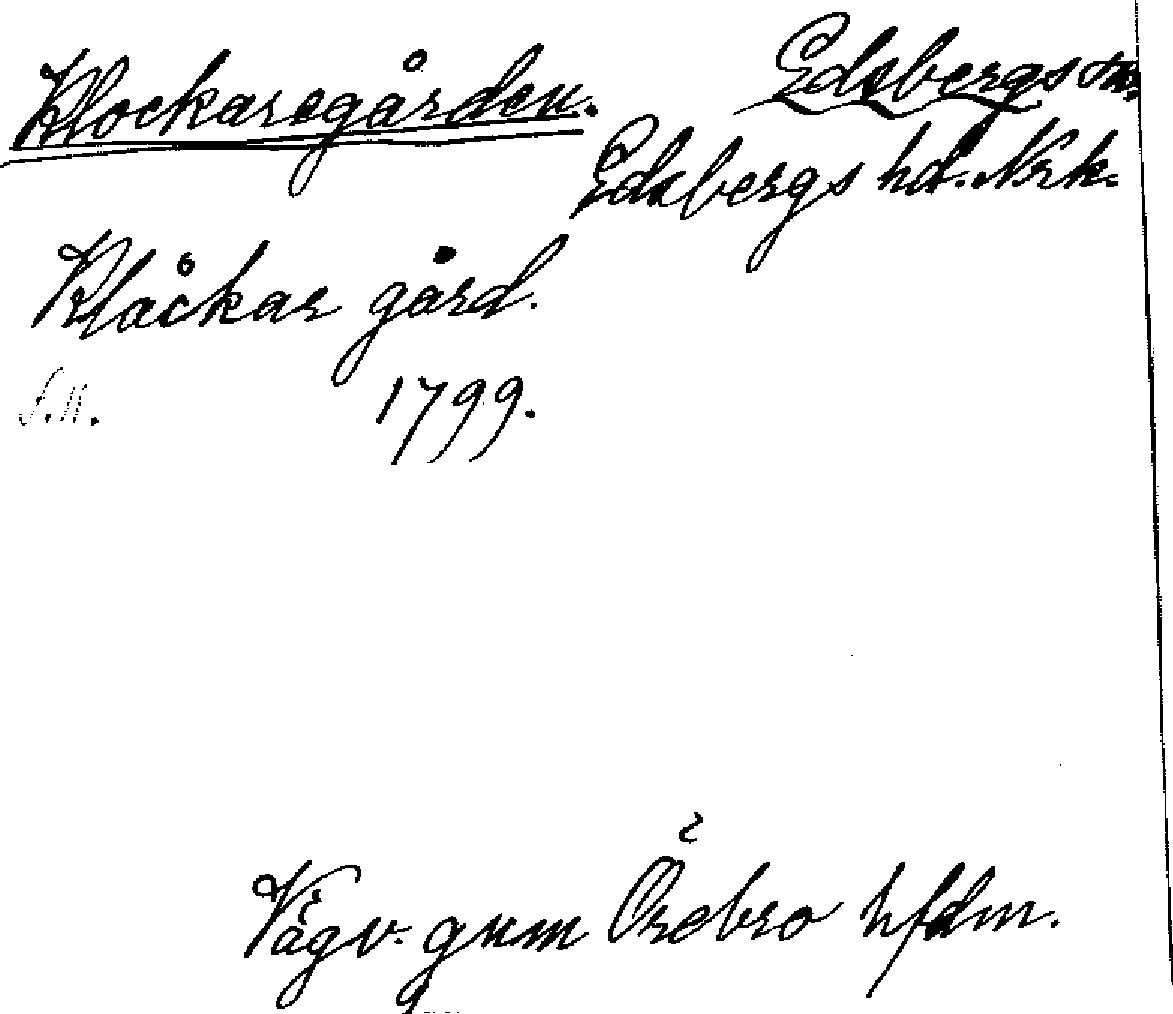 Klockaregården. Edsbergs sn.
Edsbergs hd. Nrk.
Klåckar gård.
1799.
Vägv. gnm Örebro hfdm.